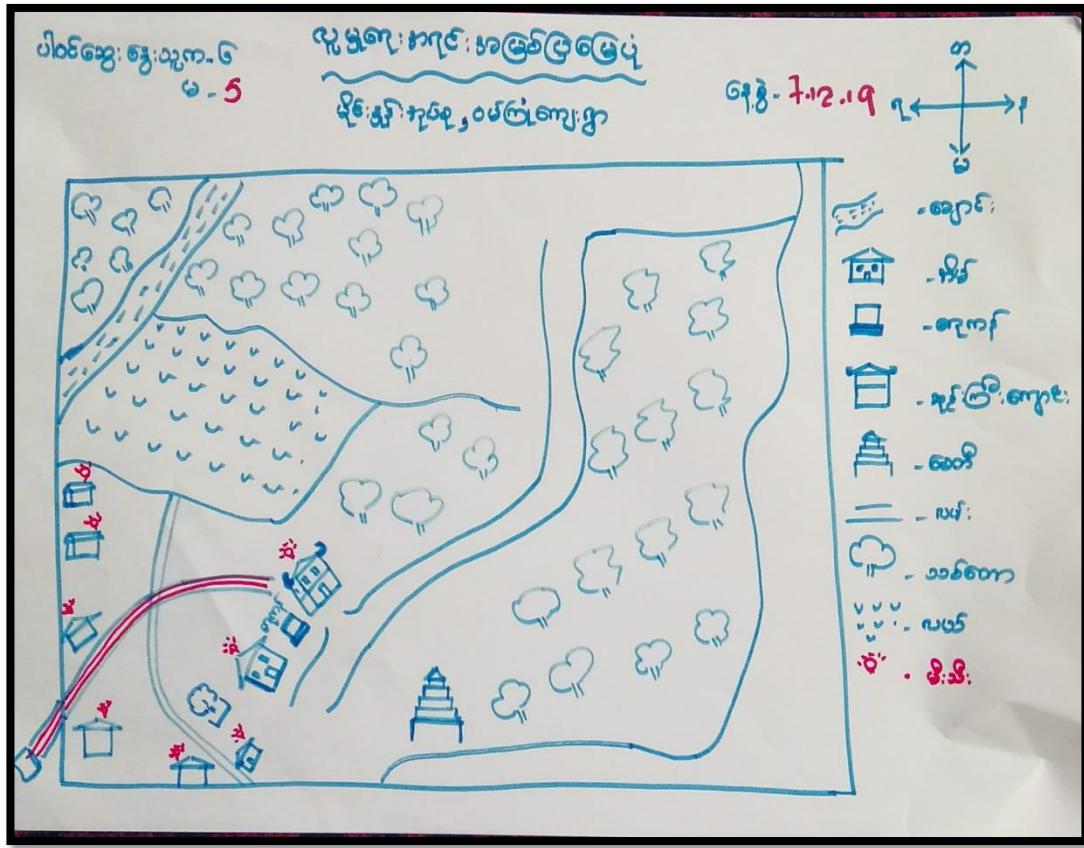 ပါဝင်ဆွေးနွေးသူ ကျ - ၆
မ - 5
လူမှုရေးအရင်းအမြစ်ပြမြေပုံ
မိုင်းနှန်းအုပ်စု, ဝမ်ကြုံကျေးရွာ
နေ့စွဲ - 7.12.19
တ
န
မ
- ချောင်း
- အိမ်
- ရေကန်
- ဘုန်းကြီးကျောင်း
- စေတီ
- လမ်း
- သစ်တော
- လယ်
- မီးသီး